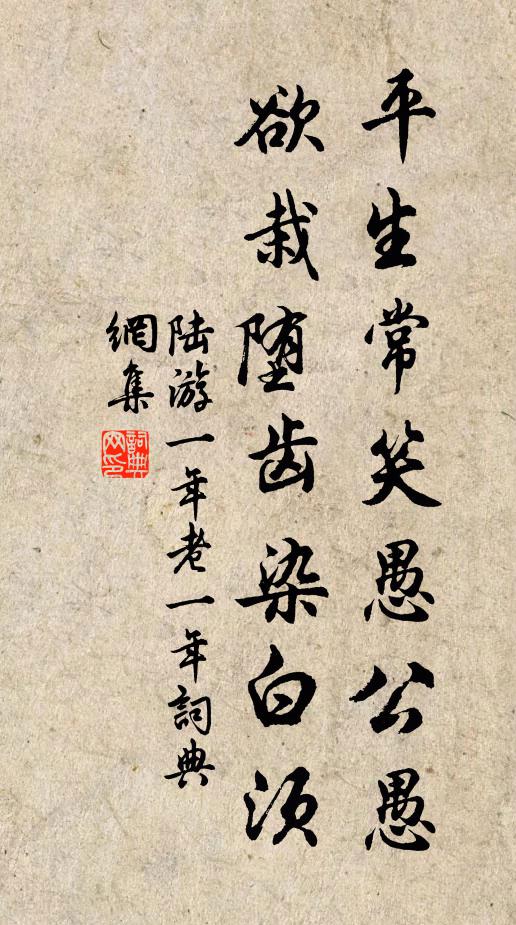 平生常笑愚公愚
欲栽堕齿染白须
陆游一年老一年詞典
網集
詞典网印